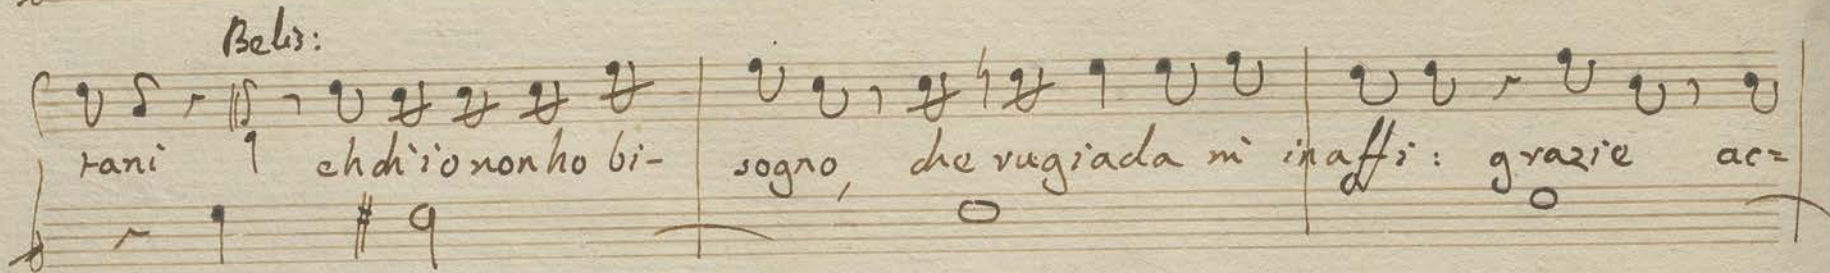 Belis:
rani eh ch'io non ho bi- sogno, che rugiada m' inaffi: grazie ac=